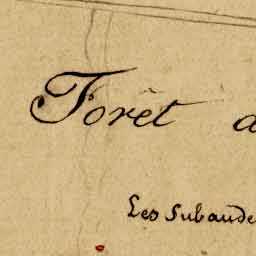 Forêt d
Les Subaude